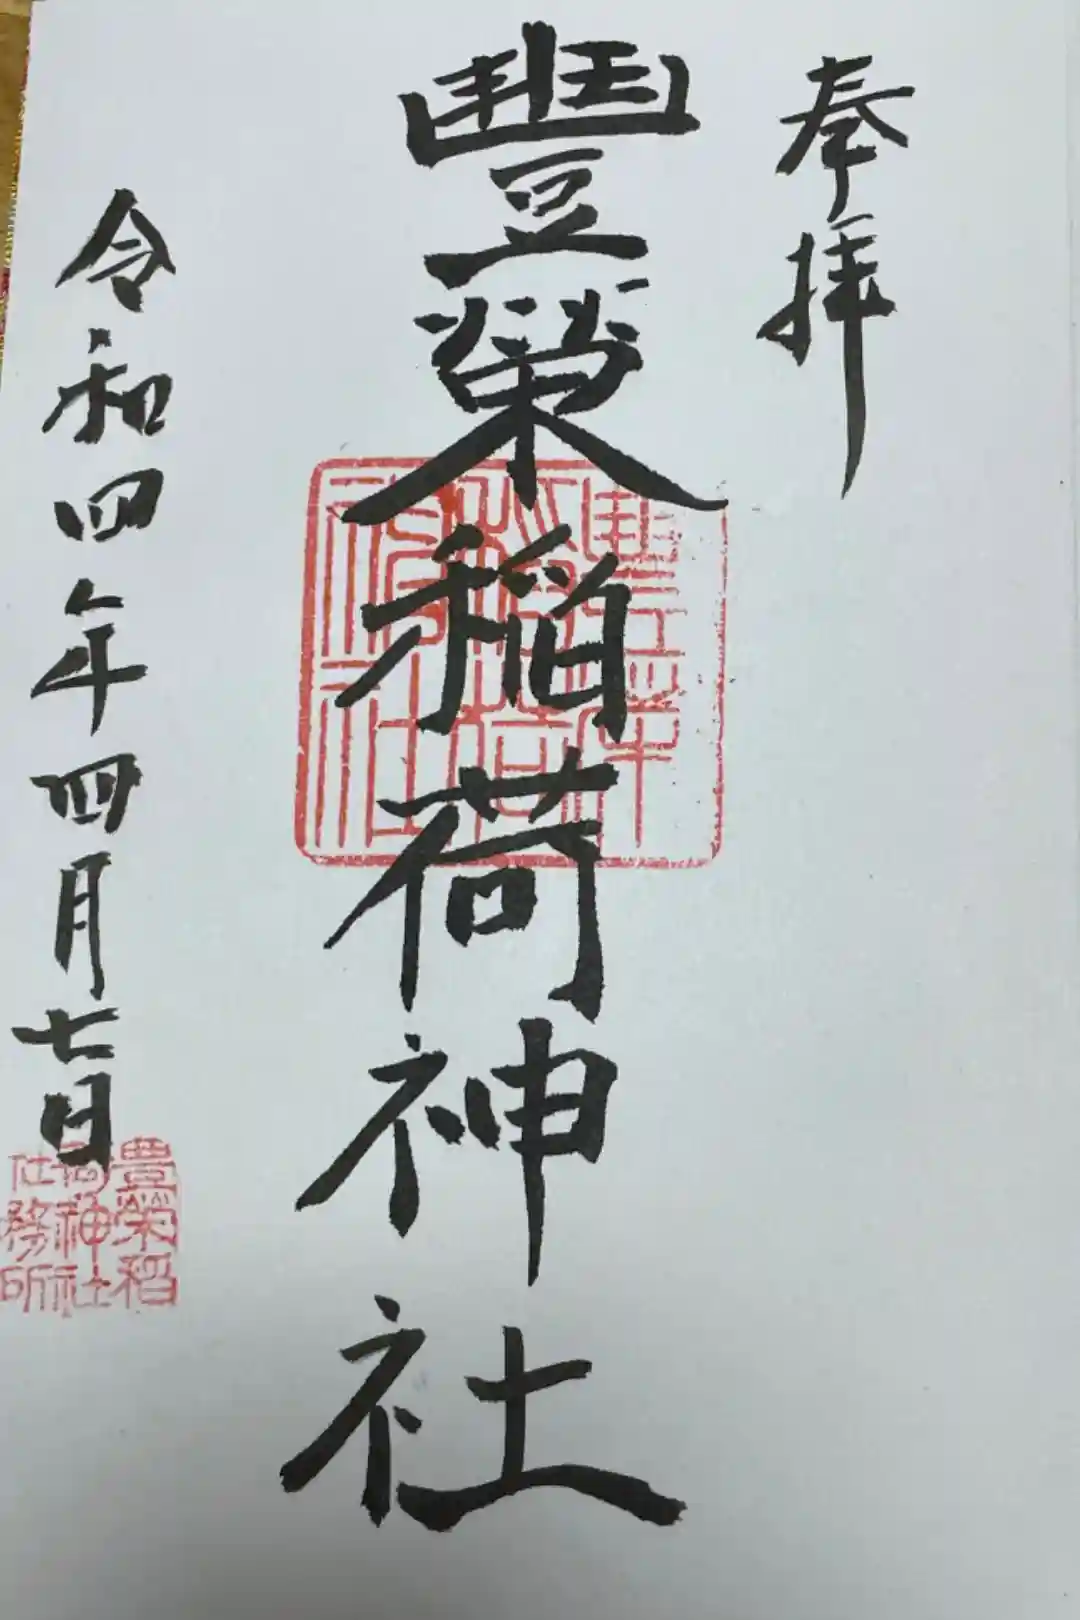 奉拝
豐榮稲荷神社
豊榮稲荷神社
令和四年四月七日
豊榮稲
荷神社
社務所